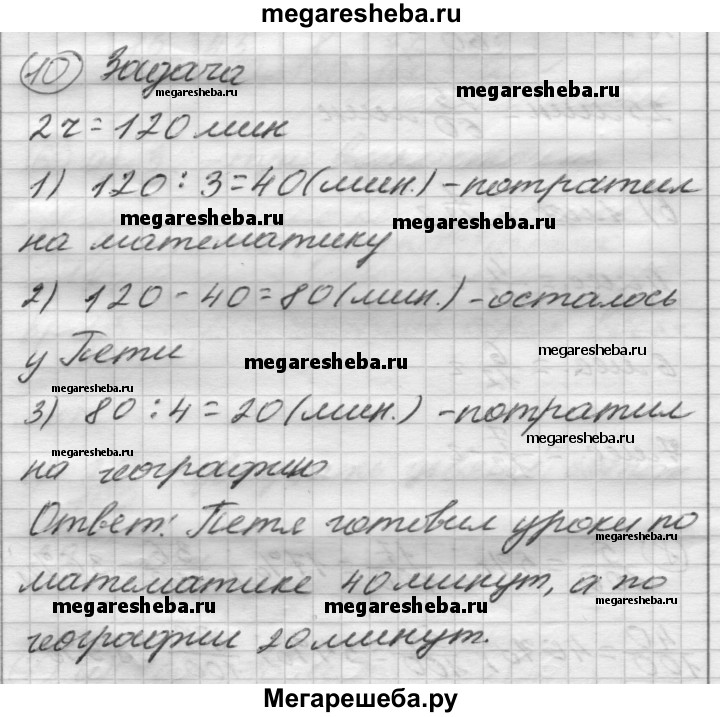 megaresheba.ru
10 Задача
megaresheba.ru megaresheba.ru
2 ч = 120 мин
1) 120 : 3 = 40 (мин.) - потратил
megaresheba.ru megaresheba.ru
на математику
2) 120 - 40 = 80 (мин.) - осталось
у Пети
megaresheba.ru megaresheba.ru
megaresheba.ru
3) 80 : 4 = 20 (мин.) - потратил
megaresheba.ru megaresheba.ru
на географию
Ответ: Петя готовил уроки по
megaresheba.ru
математике 40 минут, а по
megaresheba.ru megaresheba.ru megaresheba.ru
географии 20 минут.
Мегарешеба.ру